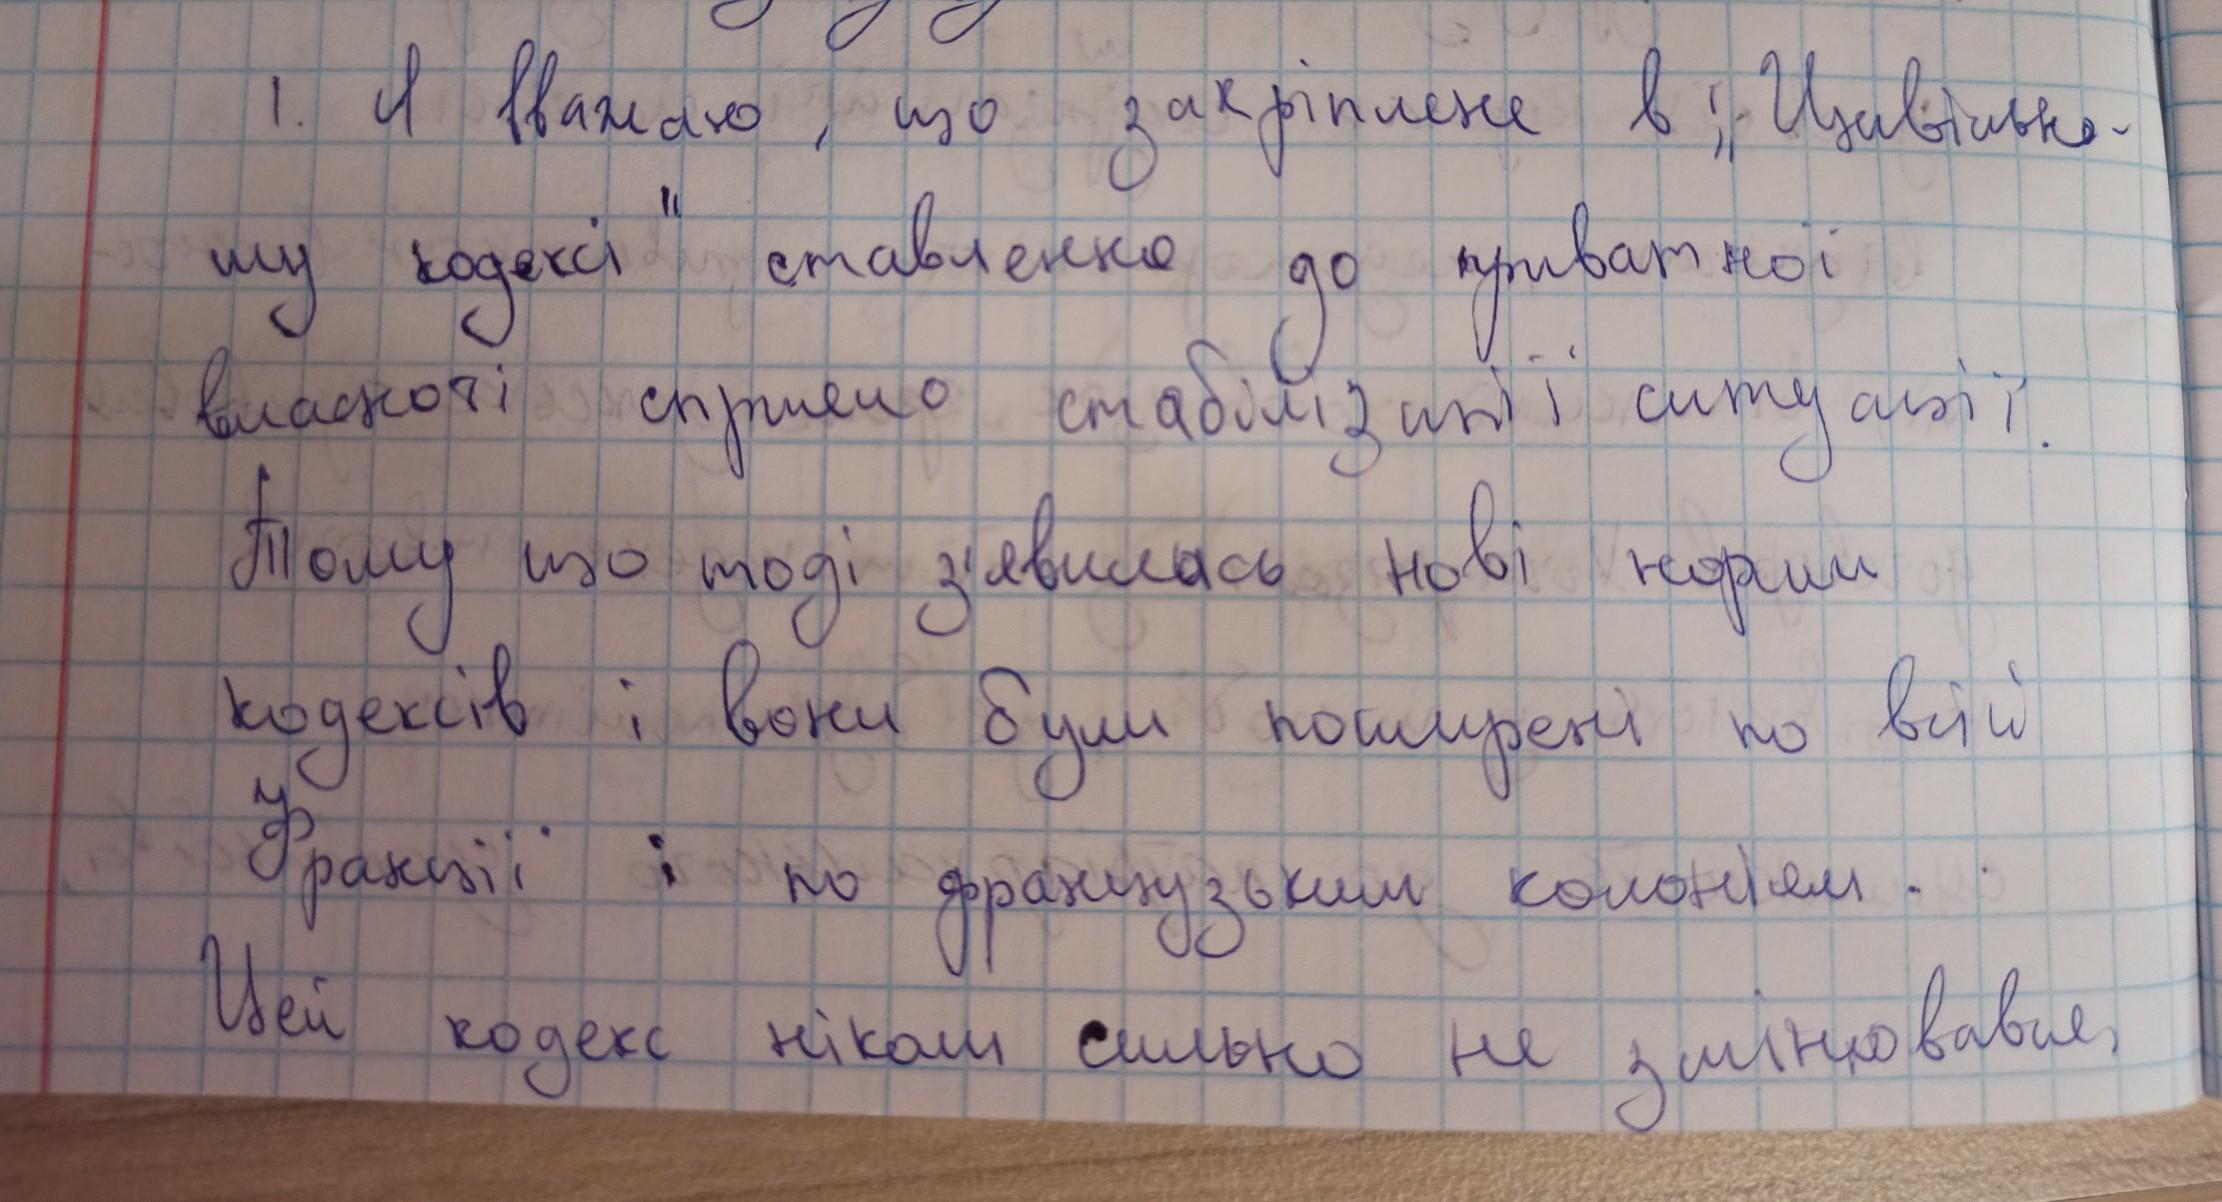 1. Я вважаю, що закріплене в „Цивільно-
му кодексі" ставлення до приватної
власності сприяло стабілізації ситуації.
Тому що тоді з'явилась нові норми
кодексів і вони були поширені по всій
Франції і по французьким колоніям.
Цей кодекс ніколи сильно не змінювався,